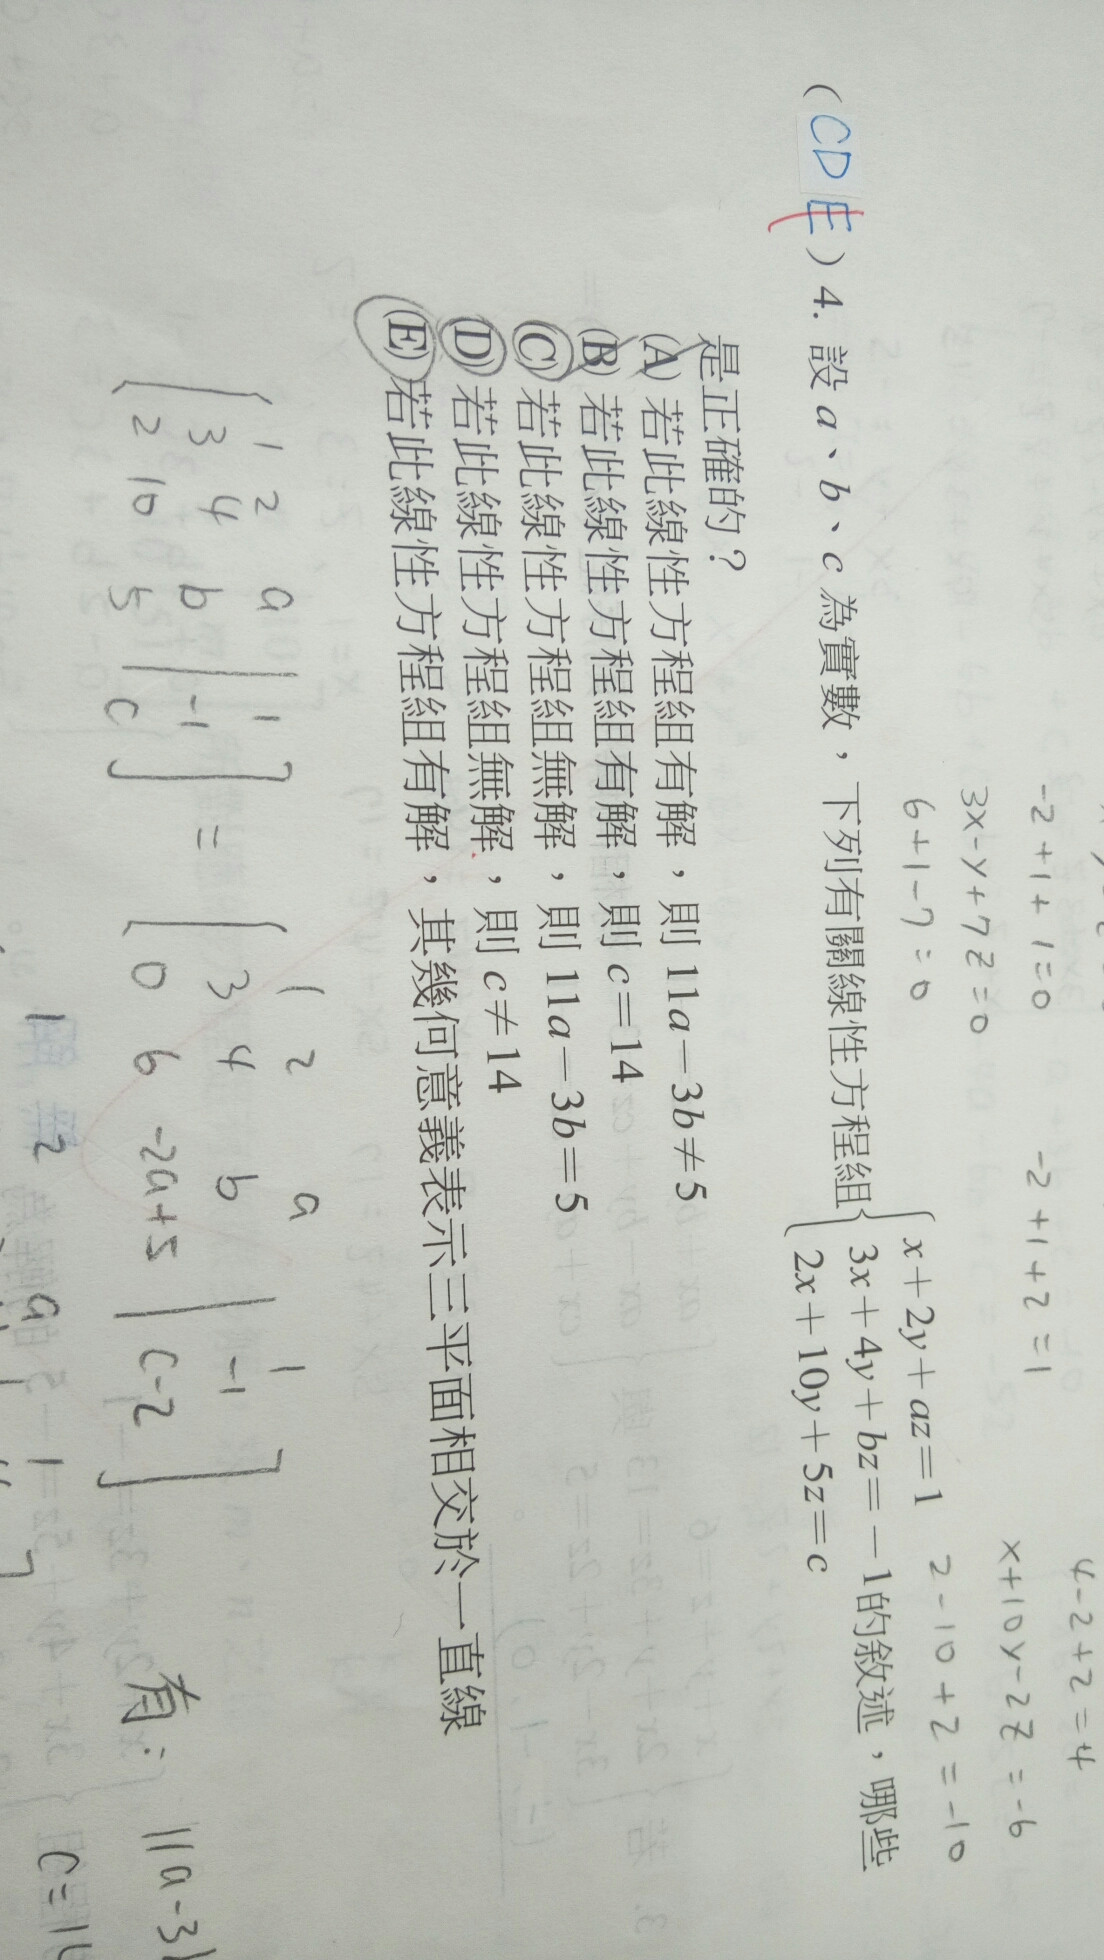 4-2+2=4
-2+1+1=0
-2+1+2=1
x+10y-2z=-6
3x-y+7z=0
6+1-7=0
2-10+2=-10
(CDE) 4. 設 a、b、c 為實數，下列有關線性方程組
x+2y+az=1
3x+4y+bz=-1的敘述，哪些
2x+10y+5z=c
是正確的？
(A) 若此線性方程組有解，則 11a-3b≠5
(B) 若此線性方程組有解，則 c=14
(C) 若此線性方程組無解，則 11a-3b=5
(D) 若此線性方程組無解，則 c≠14
(E) 若此線性方程組有解，其幾何意義表示三平面相交於一直線
1 2 a | 1
3 4 b | -1
2 10 5 | c
=
1 2 a | 1
3 4 b | -1
0 6 -2a+5 | c-2
有: 11a-3
1 2 a 1